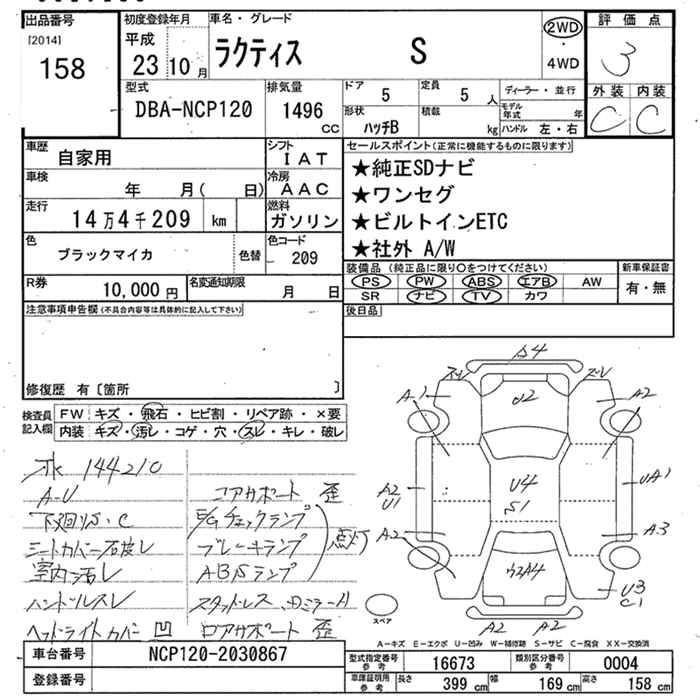 出品番号 初度登録年月 車名・グレード 評価点
[2014] 平成 ラクティス S 2WD ・ 4WD 3
158 23 10月
外装 内装
C C
型式 排気量 ドア 5 定員 5 人 ディーラー・並行
DBA-NCP120 1496 cc 形状 ハッチB 積載 kg モデル年式 年
ハンドル 左・右
車歴 自家用 シフト IAT
車検 年 月( 日) 冷房 AAC
走行 14万4千209 km 燃料 ガソリン
色 ブラックマイカ 色替 色コード 209
R券 10,000円 名変通知期限 月 日
セールスポイント(正常に機能するものに限ります)
★純正SDナビ
★ワンセグ
★ビルトインETC
★社外 A/W
装備品 (純正品に限り○をつけてください) 新車保証書
PS PW ABS エアB AW 有・無
SR ナビ TV カワ
後日品
注意事項申告欄(不具合内容等は具体的に記入して下さい)
修復歴 有〔箇所 〕
検査員記入欄 FW キズ・飛石・ヒビ割・リペア跡・×要
内装 キズ・汚レ・コゲ・穴・スレ・キレ・破レ
144210
A-U コアサポート 歪
下廻りS・C E/Gチェックランプ
シートカバー 石皮レ ブレーキランプ 点灯
室内汚レ ABSランプ
ハンドルスレ スタッドレス
ヘッドライトカバー 凹 ロアサポート 歪
A4
A1 A2
A2
U4
S1
A2
U1
UA1
A2 A3
U3
C1
A2 A2
スペア
A-キズ E-エクボ U-凹み W-補修跡 S-サビ C-腐食 XX-交換済
車台番号 NCP120-2030867
登録番号
型式指定番号 参考 16673 類別区分番号 参考 0004
車庫証明用 参考 長さ 399 cm 幅 169 cm 高さ 158 cm